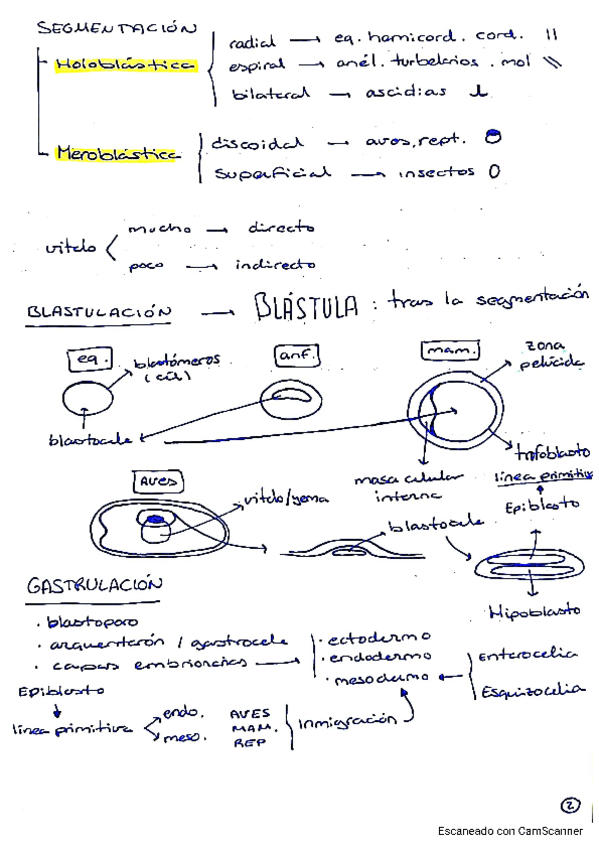 SEGMENTACIÓN
Holoblástica
radial → eq. hemicord. cord. ||
espiral → anél. turbelarios . mol \\
bilateral → ascidias
Meroblástica
discoidal → aves, rept.
superficial → insectos
vitelo
mucho → directo
poco → indirecto
BLASTULACIÓN → BLÁSTULA : tras la segmentación
eq.
blastómeros
(cél)
anf.
mam.
zona
pelúcida
blastocele
trofoblasto
masa celular
interna
línea primitiva
Epiblasto
AVES
vitelo/yema
blastocele
Hipoblasto
GASTRULACIÓN
· blastoporo
· arquenterón / gastrocele
· capas embrionarias →
· ectodermo
· endodermo
· mesodermo ←
Enterocelia
Esquizocelia
Epiblasto
línea primitiva
endo.
meso.
AVES
MAM.
REP
inmigración
2
Escaneado con CamScanner